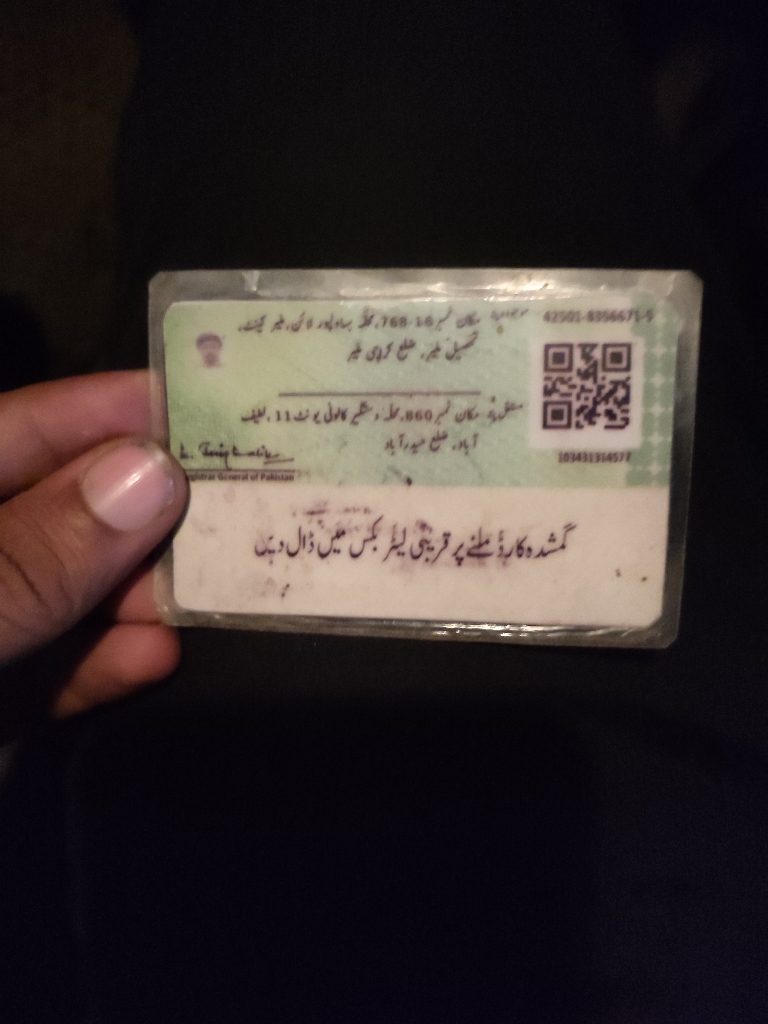 موجودہ پتہ مکان نمبر 16-768، محلہ بہاولپور لائن، ملیر کینٹ،
تحصیل ملیر، ضلع کراچی ملیر
42501-8356671-5
مستقل پتہ مکان نمبر 860، محلہ دستگیر کالونی یونٹ 11، لطیف
آباد، ضلع حیدرآباد
103431314577
Registrar General of Pakistan
گمشدہ کارڈ ملنے پر قریبی لیٹر بکس میں ڈال دیں